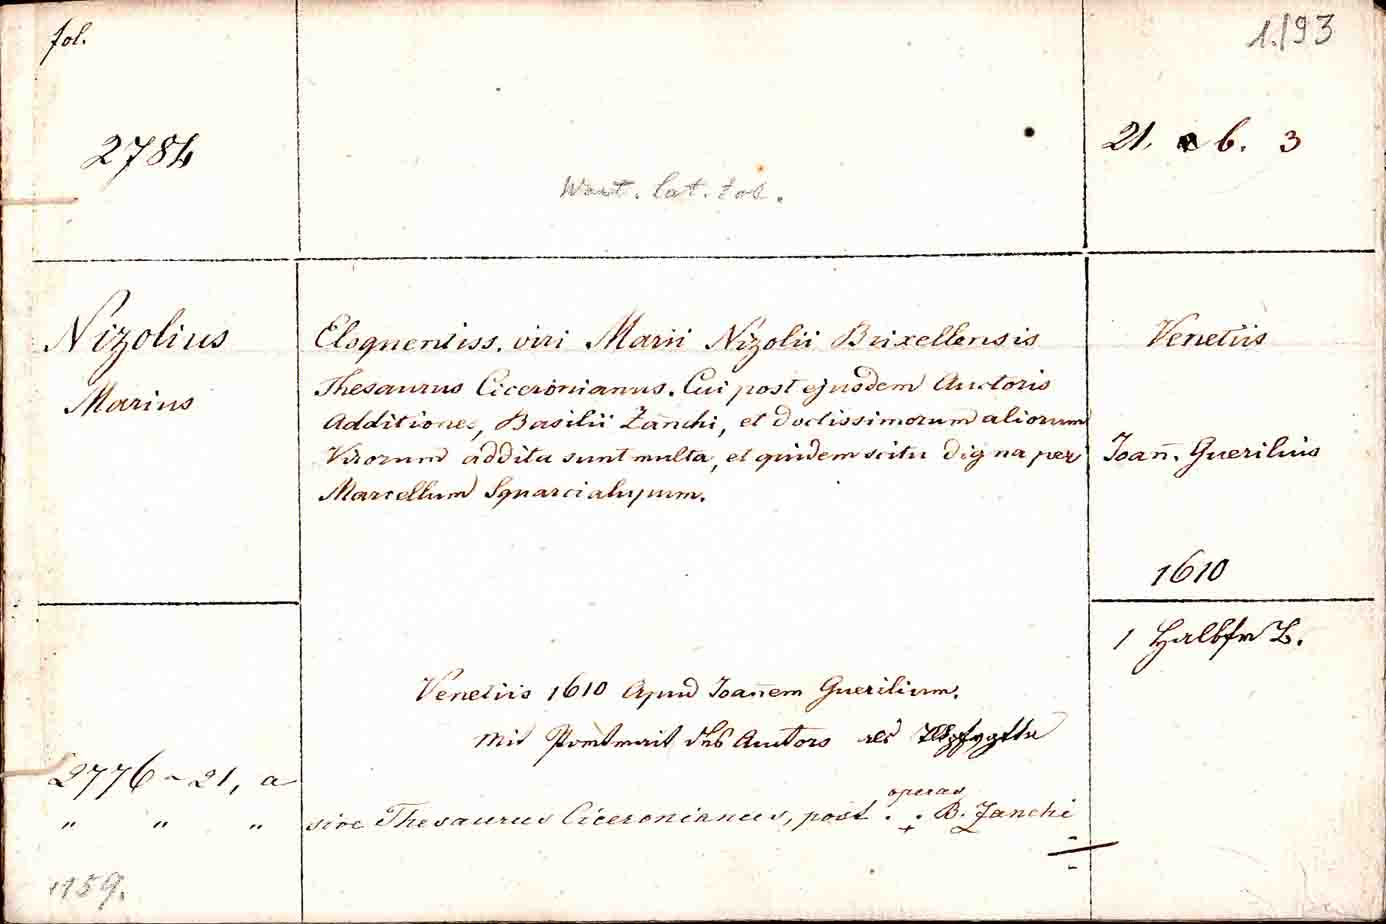 fol.
1.193
2784
21. b. 3
Wört. lat. fol.
Nizolius
Marius
Eloquentiss. viri Marii Nizolii Brixellensis
Thesaurus Ciceronianus. Cui post ejusdem Auctoris
Additiones, Basilii Zan̄chi, et doctissimorum aliorum
Virorum addita sunt multa, et quidem scitu digna per
Marcellum Squarcialupum.
Venetiis
Ioan̄. Guerilius
1610
1 Halbfr B.
Venetiis 1610 Apud Ioan̄em Guerilium.
mit Portrait des Autors als
2776 ~ 21, a
" " "
operas
sive Thesaurus Ciceronianus, post . . B. Zanchi
+
1159.